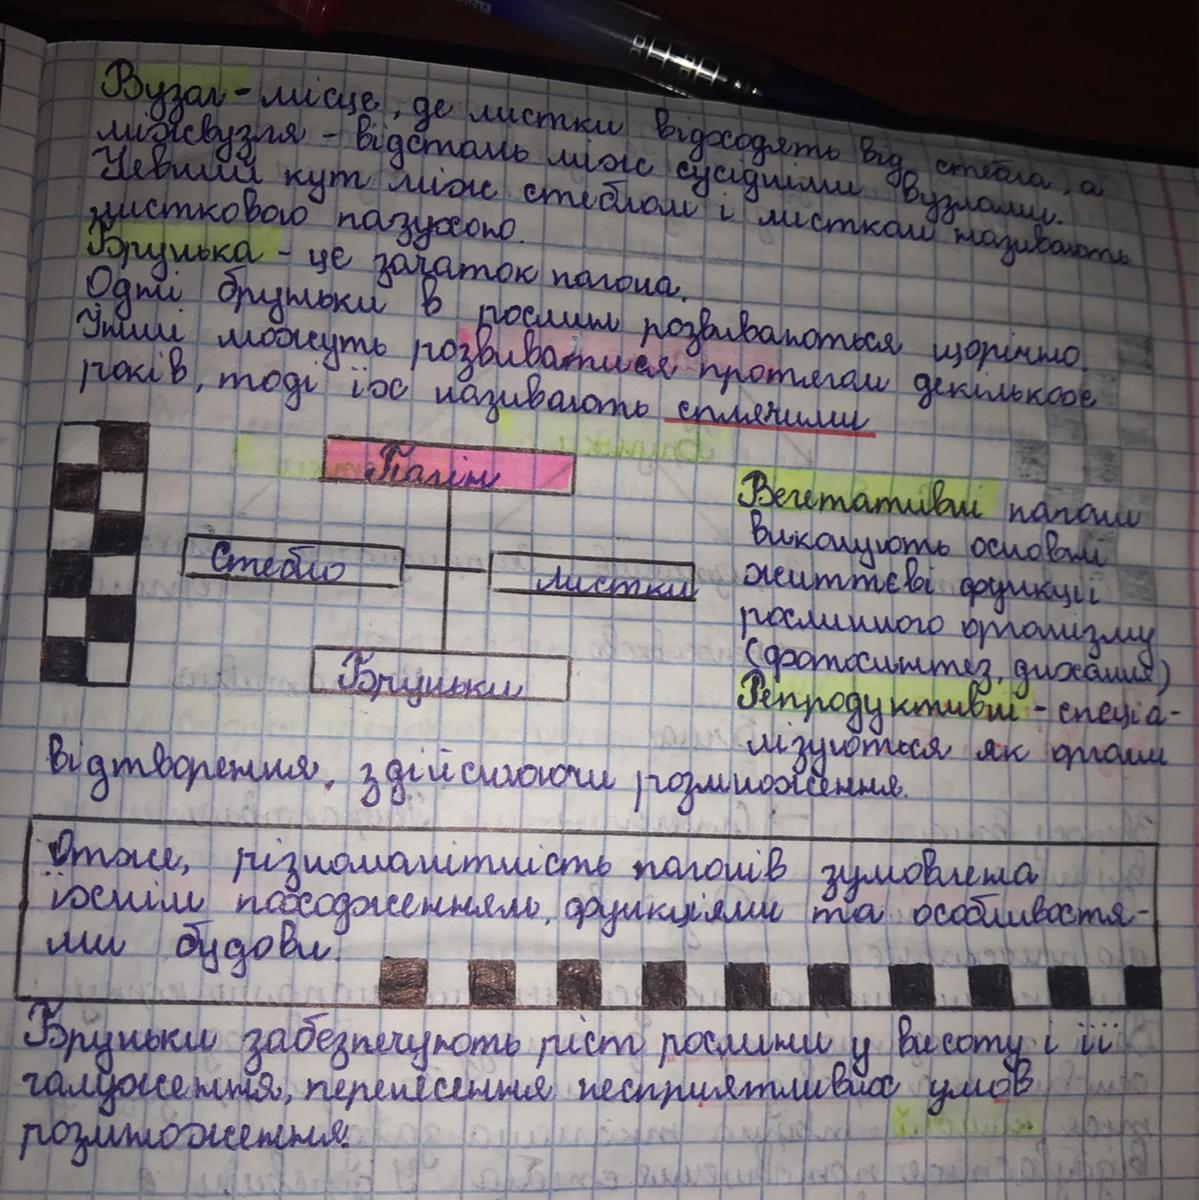 Вузол - місце, де листки відходять від стебла, а
міжвузля - відстань між сусідніми вузлами.
Певний кут між стеблом і листком називають
листковою пазухою.
Брунька - це зачаток пагона.
Одні бруньки в рослин розвиваються щорічно.
Інші можуть розвиватися протягом декількох
років, тоді їх називають сплячими
Пагін
Стебло
листки
Бруньки
Вегетативні пагони
виконують основні
життєві функції
рослинного організму
(фотосинтез, дихання)
Репродуктивні - спеціа-
лізуються як органи
відтворення, здійснюючи розмноження.
Отже, різноманітність пагонів зумовлена
їхнім походженням, функціями та особливостя-
ми будови.
Бруньки забезпечують ріст рослини у висоту і її
галуження, перенесення несприятливих умов
розмноження.